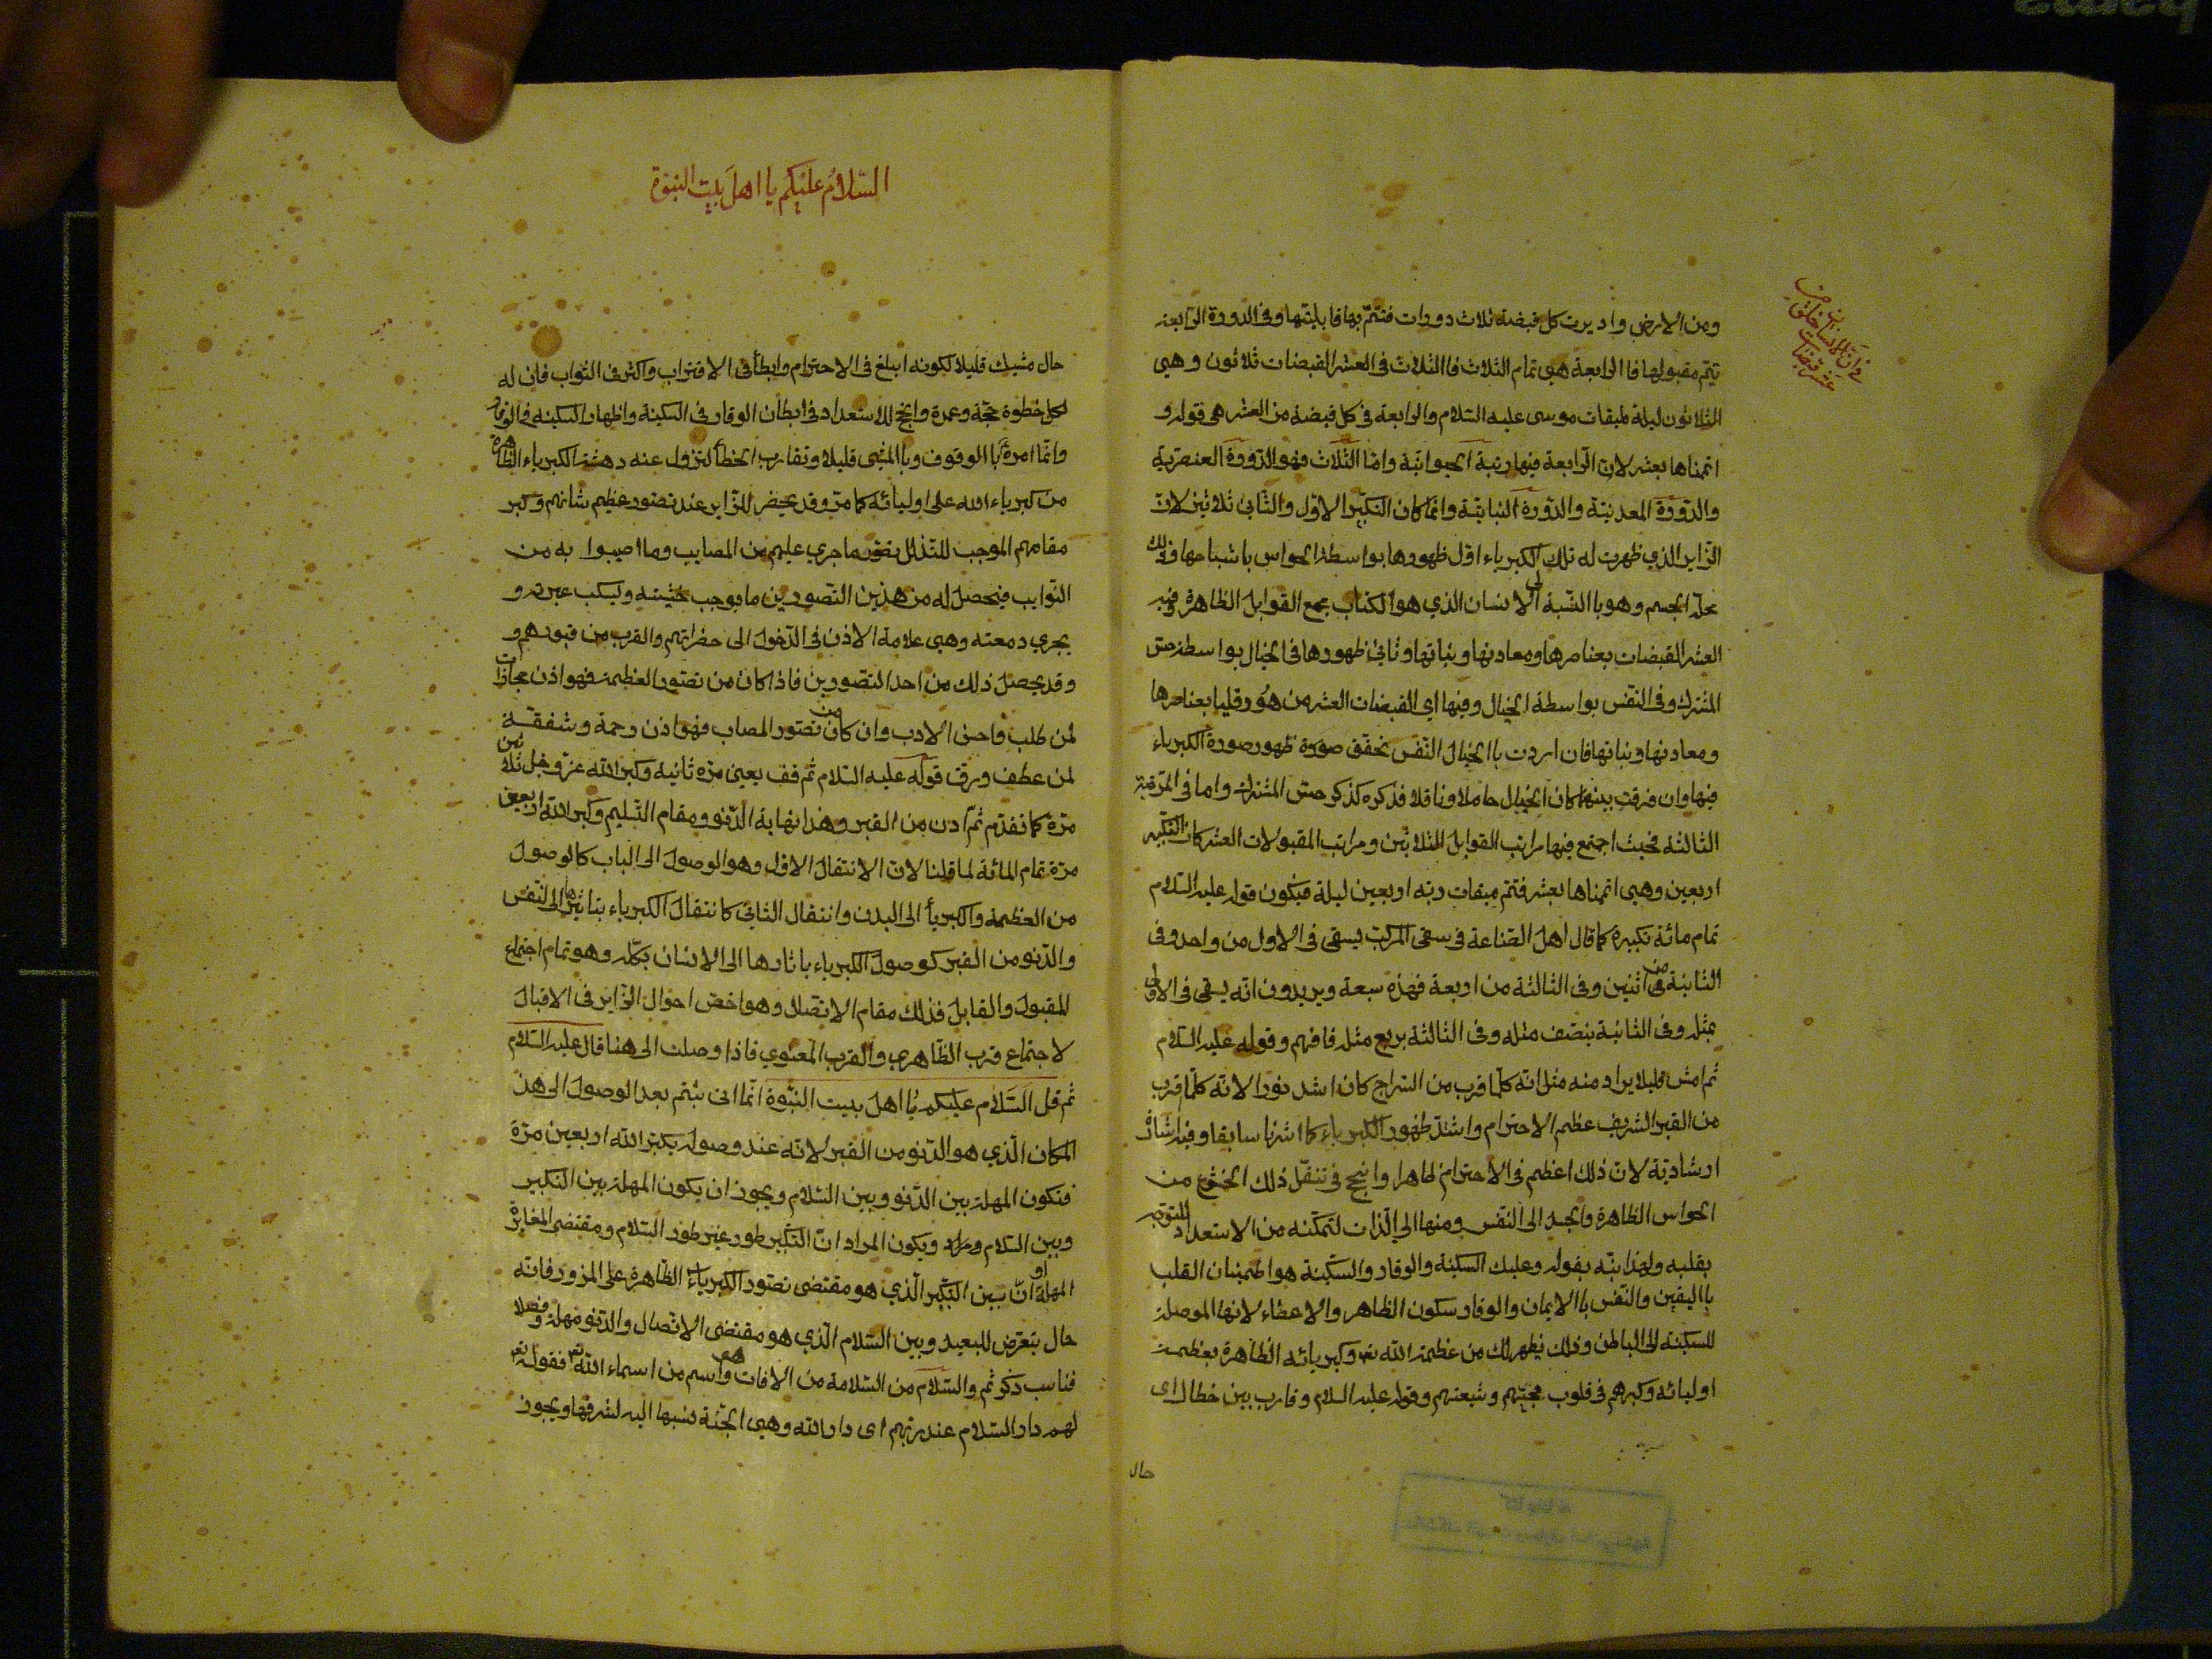 في انّ الانسان خلق من
عشر قبضات
ومن الارض واديرت كل قبضة ثلاث دورات فتتمّ بها قابليتها وفي الدورة الرابعة
يتم مقبولها فالرابعة هي تمام الثلاث فا الثلاث في العشر القبضات ثلاثون وهي
الثلاثون ليلة لميقات موسى عليه السّلام والرابعة في كل قبضة من العشر هي قوله و
اتممناها بعشر لان الرّابعة فيها رتبة الحيوانيّة وامّا الثّلاث فهو الدّورة العنصريّة
والدّورة المعدنيّة والدّورة النباتيّة وانّما كان التكبير الاوّل والثّاني ثلاثين لانّ
الزّاير الذي ظهرت له تلك الكبرياء اوّل ظهورها بواسطة الحواس باشباحها في ذلك
محلّه الجسم وهو با النّسبة الى الانسان الذي هو الكتاب مجمع القوابل الظاهرة وفيه
العشر القبضات بعناصرها ومعادنها ونباتها وثاني ظهورها في الخيال بواسطة حسّ
المشترك وفي النّفس بواسطة الخيال وفيها اي القبضات العشر من هورقليا بعناصرها
ومعادنها ونباتها فان اردت با الخيال النّفس تحقق صورة ظهور صورة الكبرياء
فيها وان فرقت بينهما كان الخيال حاملا وناقلا فذكره كذكر حسّ المشترك واما في المرّتبة
الثالثة فحيث اجتمع فيها مراتب القوابل الثلاثين ومراتب المقبولات العشر كان التكبير
اربعين وهي اتممناها بعشر فتم ميقات ربه اربعين ليلة فيكون قوله عليه السّلام
تمام مائة تكبيرة كما قال اهل الصّناعة في سقى المركّب يسقى في الاول من واحد وفي
الثانية من اثنين وفي الثالثة من اربعة فهذه سبعة ويريدون انّه يسقى في الاولى
بمثله وفي الثانية بنصف مثله وفي الثالثة بربع مثله فافهم وقوله عليه السّلام
ثم امش قليلا يراد منه مثل انّه كلّما قرب من السّراج كان اشد نورا لانّه كلّما قرب
من القبر الشريف عظم الاحترام واشتدّ ظهور الكبرياء كما اشرنا سابقا وفيه اشارة
ارشاديّة لانّ ذلك اعظم في الاحترام ظاهرا وانجح في تنقّل ذلك الخشوع من
الحواس الظاهرة والجسد الى النّفس ومنها الى الذّات لتمكّنه من الاستعداد للتوجّه
بقلبه ولهذا نبّه بقوله وعليك السّكينة والوقار والسّكينة هو اطمينان القلب
با اليقين والنّفس با الايمان والوقار سكون الظاهر والاعضاء لانها الموصلة
للسّكينة الى الباطن وذلك يظهر لك من عظمة الله تعـ وكبريائه الظاهرة بعظمة
اوليائه وكبرهم في قلوب محبّتهم وشيعتهم وقوله عليه السلام وقارب بين خطاك اى
حال
السّلام عليكم يا اهل بيت النبوّة
حال مشيك قليلا لكونه ابلغ في الاحترام وابطأ في الاقتراب واكثر في الثواب فان له
لكل خطوة حجّة وعمرة وانجح للاستعداد في ابطان الوقار في السكينة واظهار السكينة في الوقار
وانّما امرة با الوقوف وبا المشي قليلا وتقارب الخطأ لتزول عنه دهشة الكبرياء الظّاهرة
من كبرياء الله على اوليائه كما مرّ وقد يحضر للزّاير عند تصوّر عظيم شانهم وكبر
مقامهم الموجب للتذلل تصوّر ما جرى عليهم من المصايب وما اصيبوا به من
النّوايب فيحصل له من هذين التّصورين ما يوجب خشيته وليسكب عبرته و
يجري دمعته وهي علامة الاذن في الدّخول الى حضراتهم والقرب من قبورهم و
وقد يحصل ذلك من احد التّصورين فاذا كان من تصوّر العظمة فهو اذن مجازات
لمن طلب واحسن الادب وان كان من تصوّر المصاب فهو اذن رحمة وشفقة
لمن عطف ورقّ قوله عليه السّلام ثم قف يعين مرّة ثانية وكبّر الله عزّ وجل ثلاثين
مرّة كما تقدّم ثمّ ادن من القبر وهذا نهاية الدّنو ومقام التّسليم وكبّر الله اربعين
مرّة تمام المائة لما قلنا لانّ الانتقال الاول وهو الوصول الى الباب كالوصول
من العظمة والكبريأ الى البدن وانتقال الثاني كانتقال الكبرياء بتاثيرها الى النّفس
والدّنو من القبر كوصول الكبرياء باثارها الى الانسان بكلّه وهو تمام اجتماع
المقبول والقابل فذلك مقام الاتصال وهو اخصّ احوال الزّاير في الاقبال
لاجتماع قرب الظّاهري والقرب المعنوي فاذا وصلت الى هنا قال عليه السّلام
ثم قل السّلام عليكم يا اهل بيت النبّوة انّما اتى بثم بعد الوصول الى هذ
المكان الّذي هو الدّنو من القبر لانّه عند وصوله يكبّر الله اربعين مرّة
فتكون المهلة بين الدّنو وبين السّلام ويجوز ان يكون المهلة بين التكبير
وبين السّلام ويكون المراد انّ التكبير طور غير طور السّلام ومقتضى المغايرة
المهلة او انّ بين التّكبير الّذي هو مقتضى تصوّر الكبرياء الظّاهرة على المزور فانّه
حال يتعرّض للبعيد وبين السّلام الّذي هو مقتضى الاتّصال والدّنو مهلة وفصلا
فناسب ذكر ثم والسّلام من السّلامة من الافات وهو اسم من اسماء الله تعـ فقوله تعـ
لهم دار السّلام عند ربّهم اى دار الله وهي الجنّة نسبها اليه لشرفها ويجوز